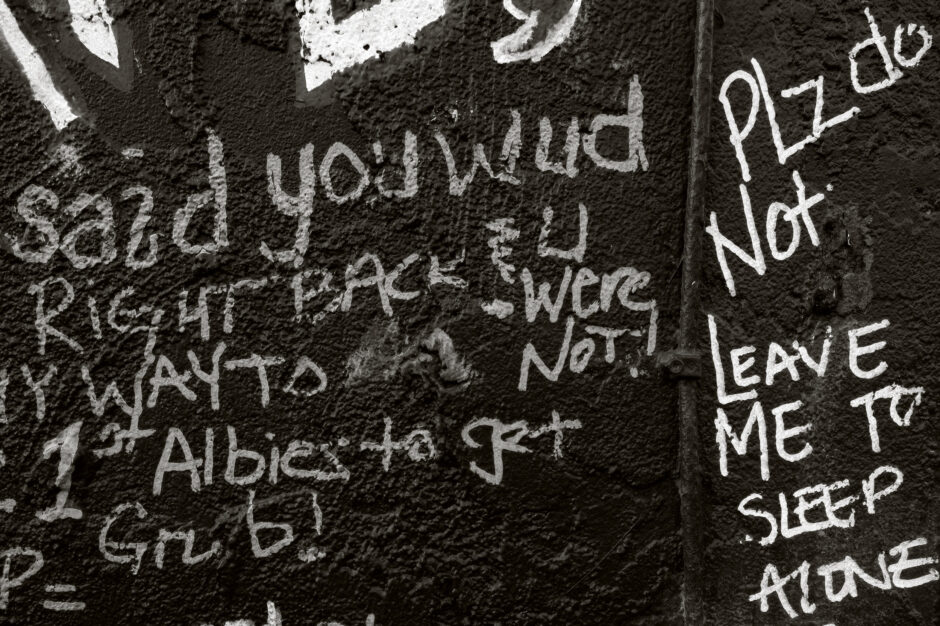 said you wud
RIGHT BACK & U
were
NOT!
WAY TO
1st Albies to get
Grub!
P =
Plz do
Not.
LEAVE
ME TO
SLEEP
ALONE